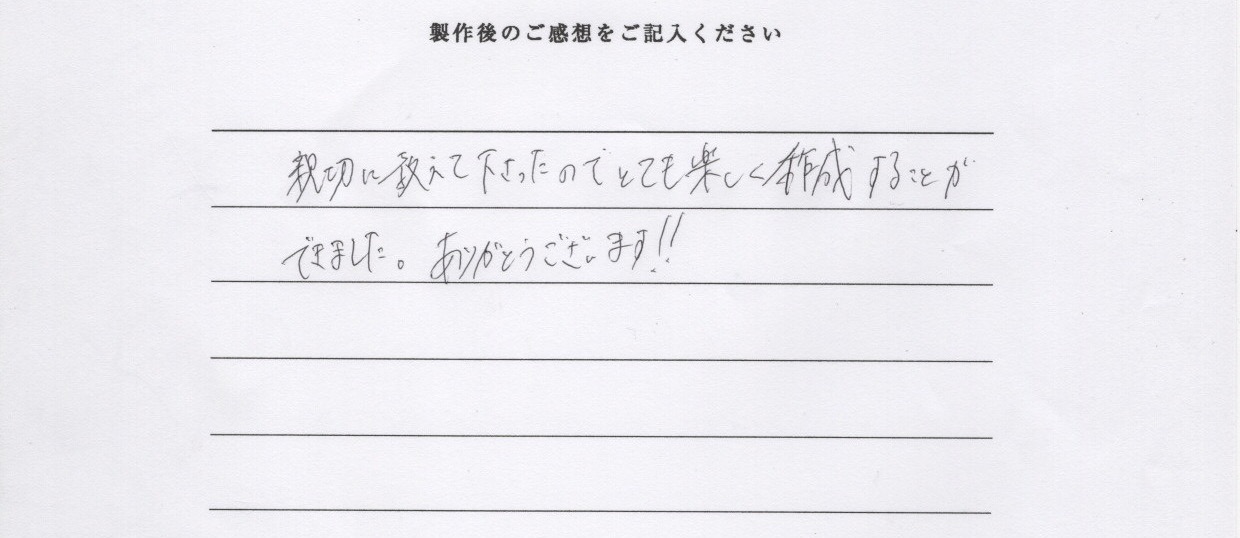 製作後のご感想をご記入ください
親切に教えて下さったのでとても楽しく作成することが
できました。ありがとうございます!!